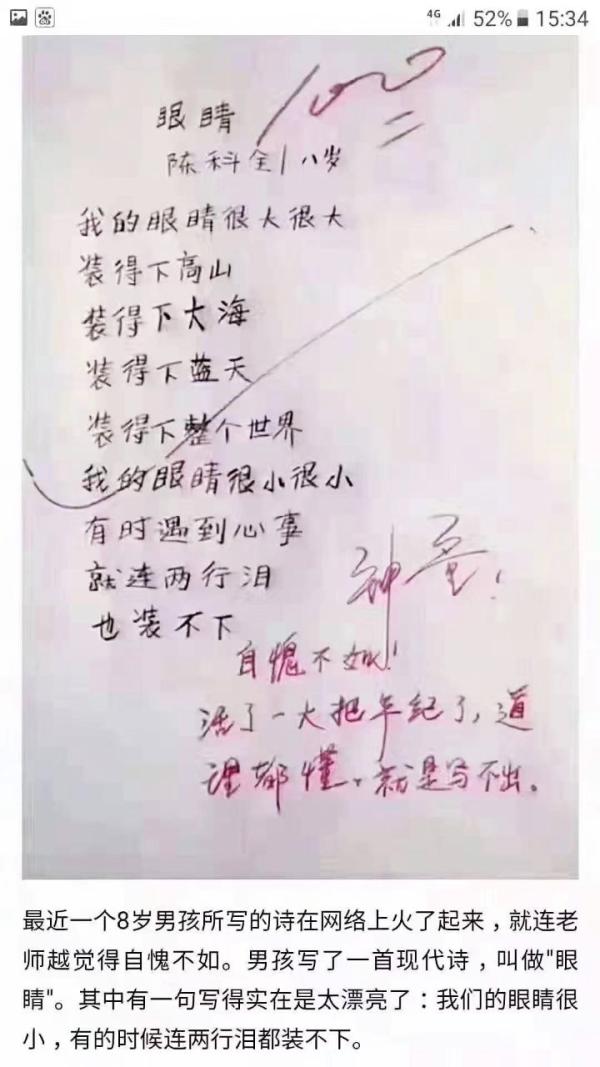 4G 52% 15:34
100
眼睛
陈科全/八岁
我的眼睛很大很大
装得下高山
装得下大海
装得下蓝天
装得下整个世界
我的眼睛很小很小
有时遇到心事
就连两行泪
也装不下
神童!
自愧不如!
活了一大把年纪了,道
理都懂,就是写不出。
最近一个8岁男孩所写的诗在网络上火了起来,就连老
师越觉得自愧不如。男孩写了一首现代诗,叫做"眼
睛"。其中有一句写得实在是太漂亮了:我们的眼睛很
小,有的时候连两行泪都装不下。